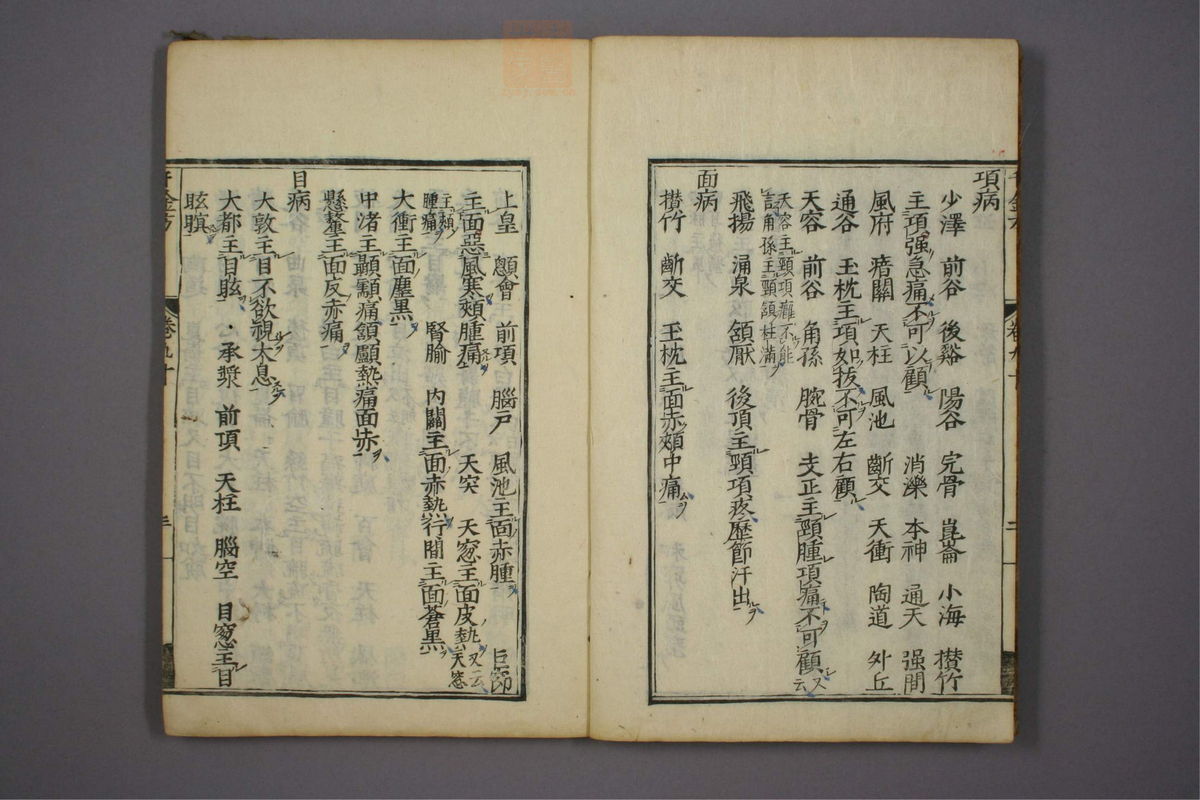 項病
少澤 前谷 後谿 陽谷 完骨 崑崙 小海 攅竹
主項强急痛不可以顧 消濼 本神 通天 强間
風府 瘖關 天柱 風池 斷交 天衝 陶道 外丘
通谷 玉枕主項如拔不可左右顧
天容 前谷 角孫 腕骨 支正主頸腫項痛不可顧又云
天容主頸項癰不能
言角孫主頸頷柱滿
飛揚 涌泉 頷厭 後頂主頸項疼歷節汗出
面病
攅竹 斷交 玉枕主面赤頰中痛
上皇 顖會 前項 腦戶 風池主面赤腫 巨窌
主面惡風寒頰腫痛 天突 天窓主面皮熱又云天窓
主頰
腫痛
腎腧 內關主面赤熱行間主面蒼黑
大衝主面塵黑
中渚主顳顬痛頷顱熱痛面赤
懸釐主面皮赤痛
目病
大敦主目不欲視太息
大都主目眩 承漿 前頂 天柱 腦空 目窓主目
眩瞑
千金方 卷九十